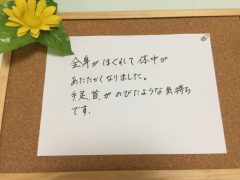 全身がほぐれて体中が
あたたかくなりました。
手足、首、がのびたような気持ち
です。